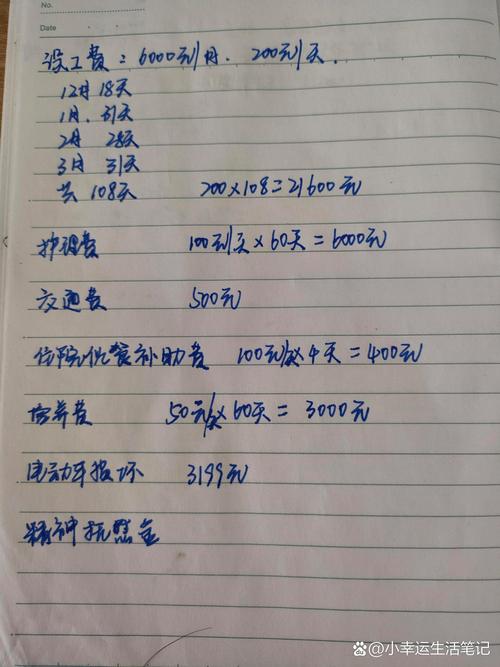 No.
Date
误工费：6000元/月、200元/天.
12月 18天
1月、31天
2月 28天
3月 31天
共 108天 200×108=21600元
护理费 100元/天×60天=6000元
交通费 500元
住院伙食补助费 100元/天×4天=400元
营养费 50元/天×60天= 3000元
电动车损坏 3199元
精神抚慰金
@小幸运生活笔记